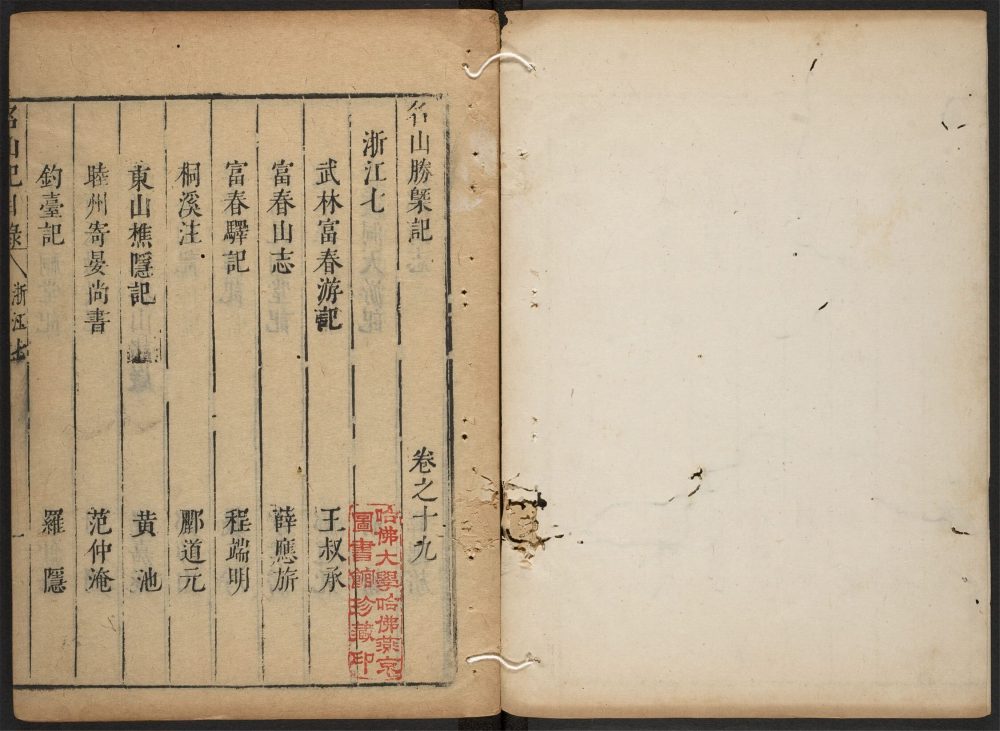 名山勝槩記 卷之十九
浙江七
武林富春游記 王叔承
富春山志 薛應旂
富春驛記 程端明
桐溪注 酈道元
東山樵隱記 黃池
睦州寄晏尚書 范仲淹
釣臺記 羅隱
名山記目錄 浙江七
哈佛大學哈佛燕京
圖書館珍藏印